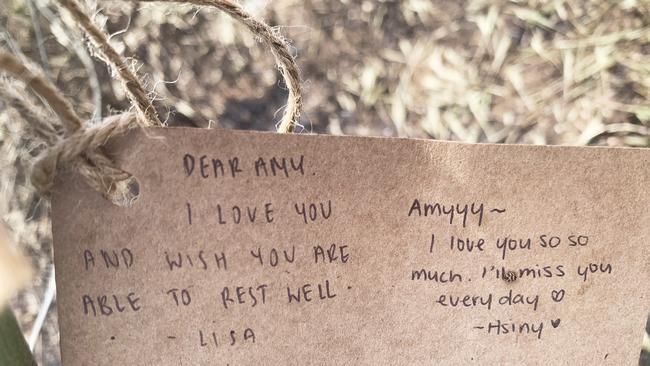 DEAR AMY.
I LOVE YOU
AND WISH YOU ARE
ABLE TO REST WELL.
- LISA
Amyyy~
I love you so so
much. I'll miss you
every day ♡
-Hsiny ♥